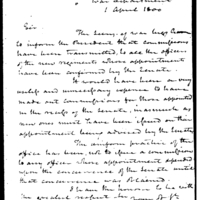 War Department
1 April 1800
Sir
The Secy. of War begs leave
to inform the President that commissions
have been transmitted, to all the officers
of the new regiments whose appointments
have been confirmed by the Senate.
It would have been an
useless and unnecessary expense to have
made out commissions for those appointed
in the recess of the Senate, inasmuch as
new ones must have been issued on their
appointment being advised by the Senate
The uniform practice of the
office has been, not to issue a commission
to any officer whose appointment depended
upon the concurrence of the Senate until
that concurrence was obtained.
I have the honour to be with
the greatest respect